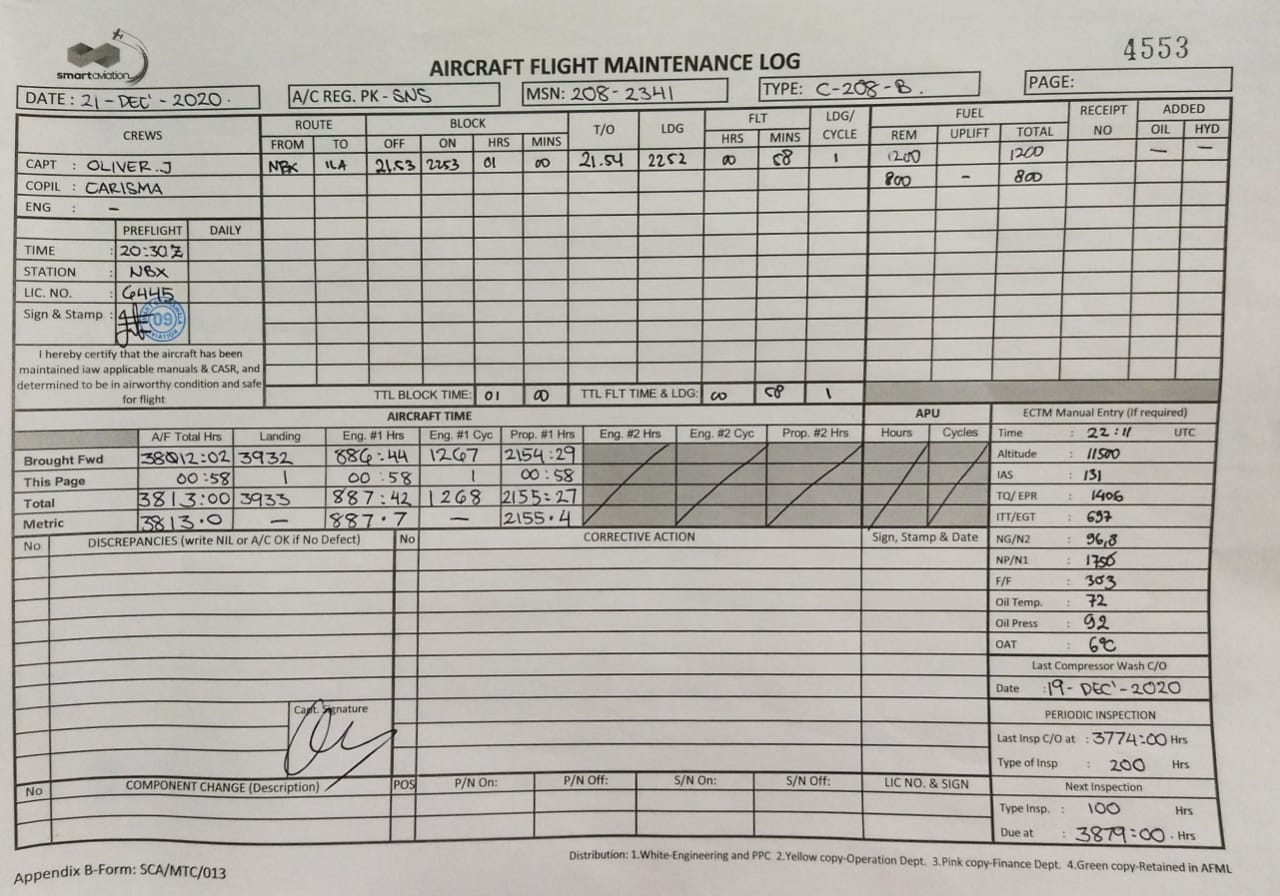 smartaviation
4553
AIRCRAFT FLIGHT MAINTENANCE LOG
DATE : 21-DEC'-2020. A/C REG. PK-SNS MSN: 208-2341 TYPE: C-208-B. PAGE:
CREWS ROUTE BLOCK T/O LDG FLT LDG/ CYCLE FUEL RECEIPT NO ADDED
FROM TO OFF ON HRS MINS HRS MINS REM UPLIFT TOTAL OIL HYD
CAPT : OLIVER.J NBX ILA 21.53 2253 01 00 21.54 2252 00 58 1 1200 1200 — —
COPIL : CARISMA 800 - 800
ENG : -
PREFLIGHT DAILY
TIME : 20:30Z
STATION : NBX
LIC. NO. : 6445
Sign & Stamp : 09
I hereby certify that the aircraft has been
maintained iaw applicable manuals & CASR, and
determined to be in airworthy condition and safe
for flight
TTL BLOCK TIME: 01 00 TTL FLT TIME & LDG: 00 58 1
AIRCRAFT TIME APU ECTM Manual Entry (If required)
A/F Total Hrs Landing Eng. #1 Hrs Eng. #1 Cyc Prop. #1 Hrs Eng. #2 Hrs Eng. #2 Cyc Prop. #2 Hrs Hours Cycles
Brought Fwd 3812:02 3932 886:44 1267 2154:29
This Page 00:58 1 00:58 1 00:58
Total 3813:00 3933 887:42 1268 2155:27
Metric 3813.0 — 887.7 — 2155.4
Time : 22:11 UTC
Altitude : 11500
IAS : 131
TQ/ EPR : 1406
ITT/EGT : 697
NG/N2 : 96,8
NP/N1 : 1750
F/F : 303
Oil Temp. : 72
Oil Press : 92
OAT : 6°C
No DISCREPANCIES (write NIL or A/C OK if No Defect) No CORRECTIVE ACTION Sign, Stamp & Date
Capt. Signature
Last Compressor Wash C/O
Date : 19-DEC'-2020
PERIODIC INSPECTION
Last Insp C/O at : 3774:00 Hrs
Type of Insp : 200 Hrs
Next Inspection
Type Insp. : 100 Hrs
Due at : 3879:00. Hrs
No COMPONENT CHANGE (Description) POS P/N On: P/N Off: S/N On: S/N Off: LIC NO. & SIGN
Distribution: 1.White-Engineering and PPC 2.Yellow copy-Operation Dept. 3.Pink copy-Finance Dept. 4.Green copy-Retained in AFML
Appendix B-Form: SCA/MTC/013